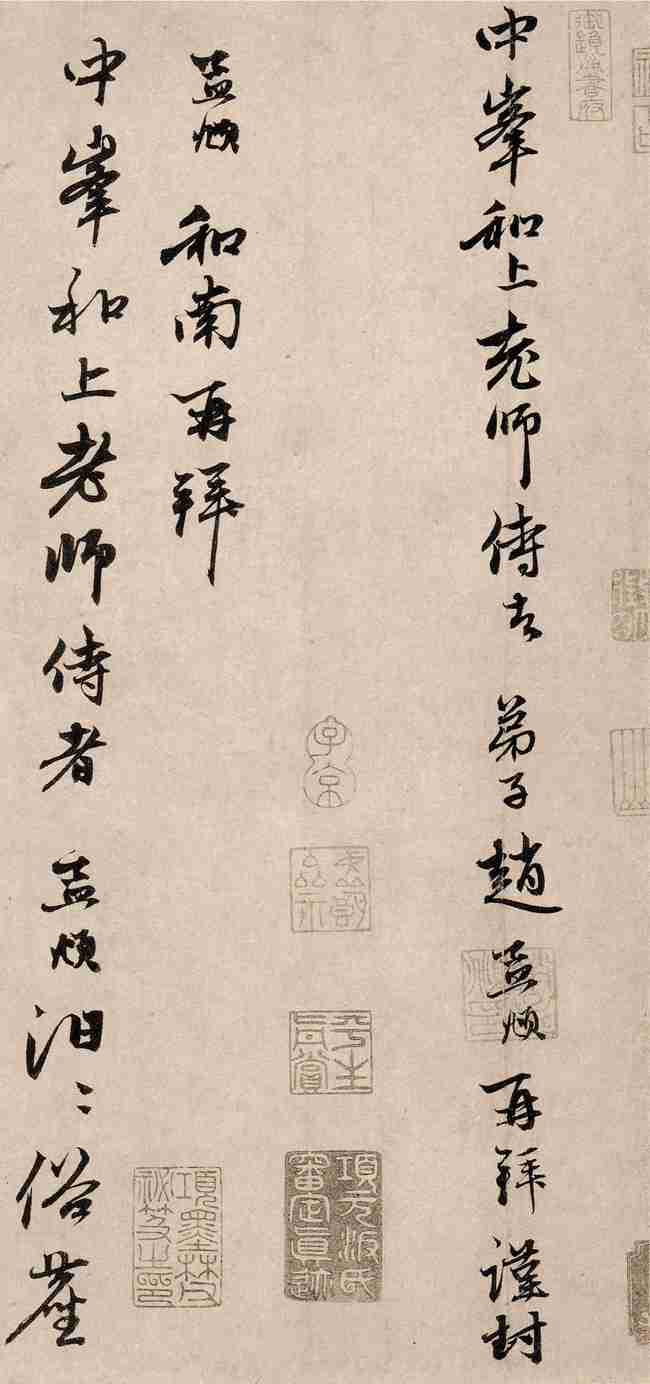 中峯和上老師侍者 弟子趙孟頫再拜謹封
子京
平生真賞
項元汴氏審定真迹
孟頫和南再拜
項墨林父祕笈之印
中峯和上老師侍者 孟頫汩〻俗塵